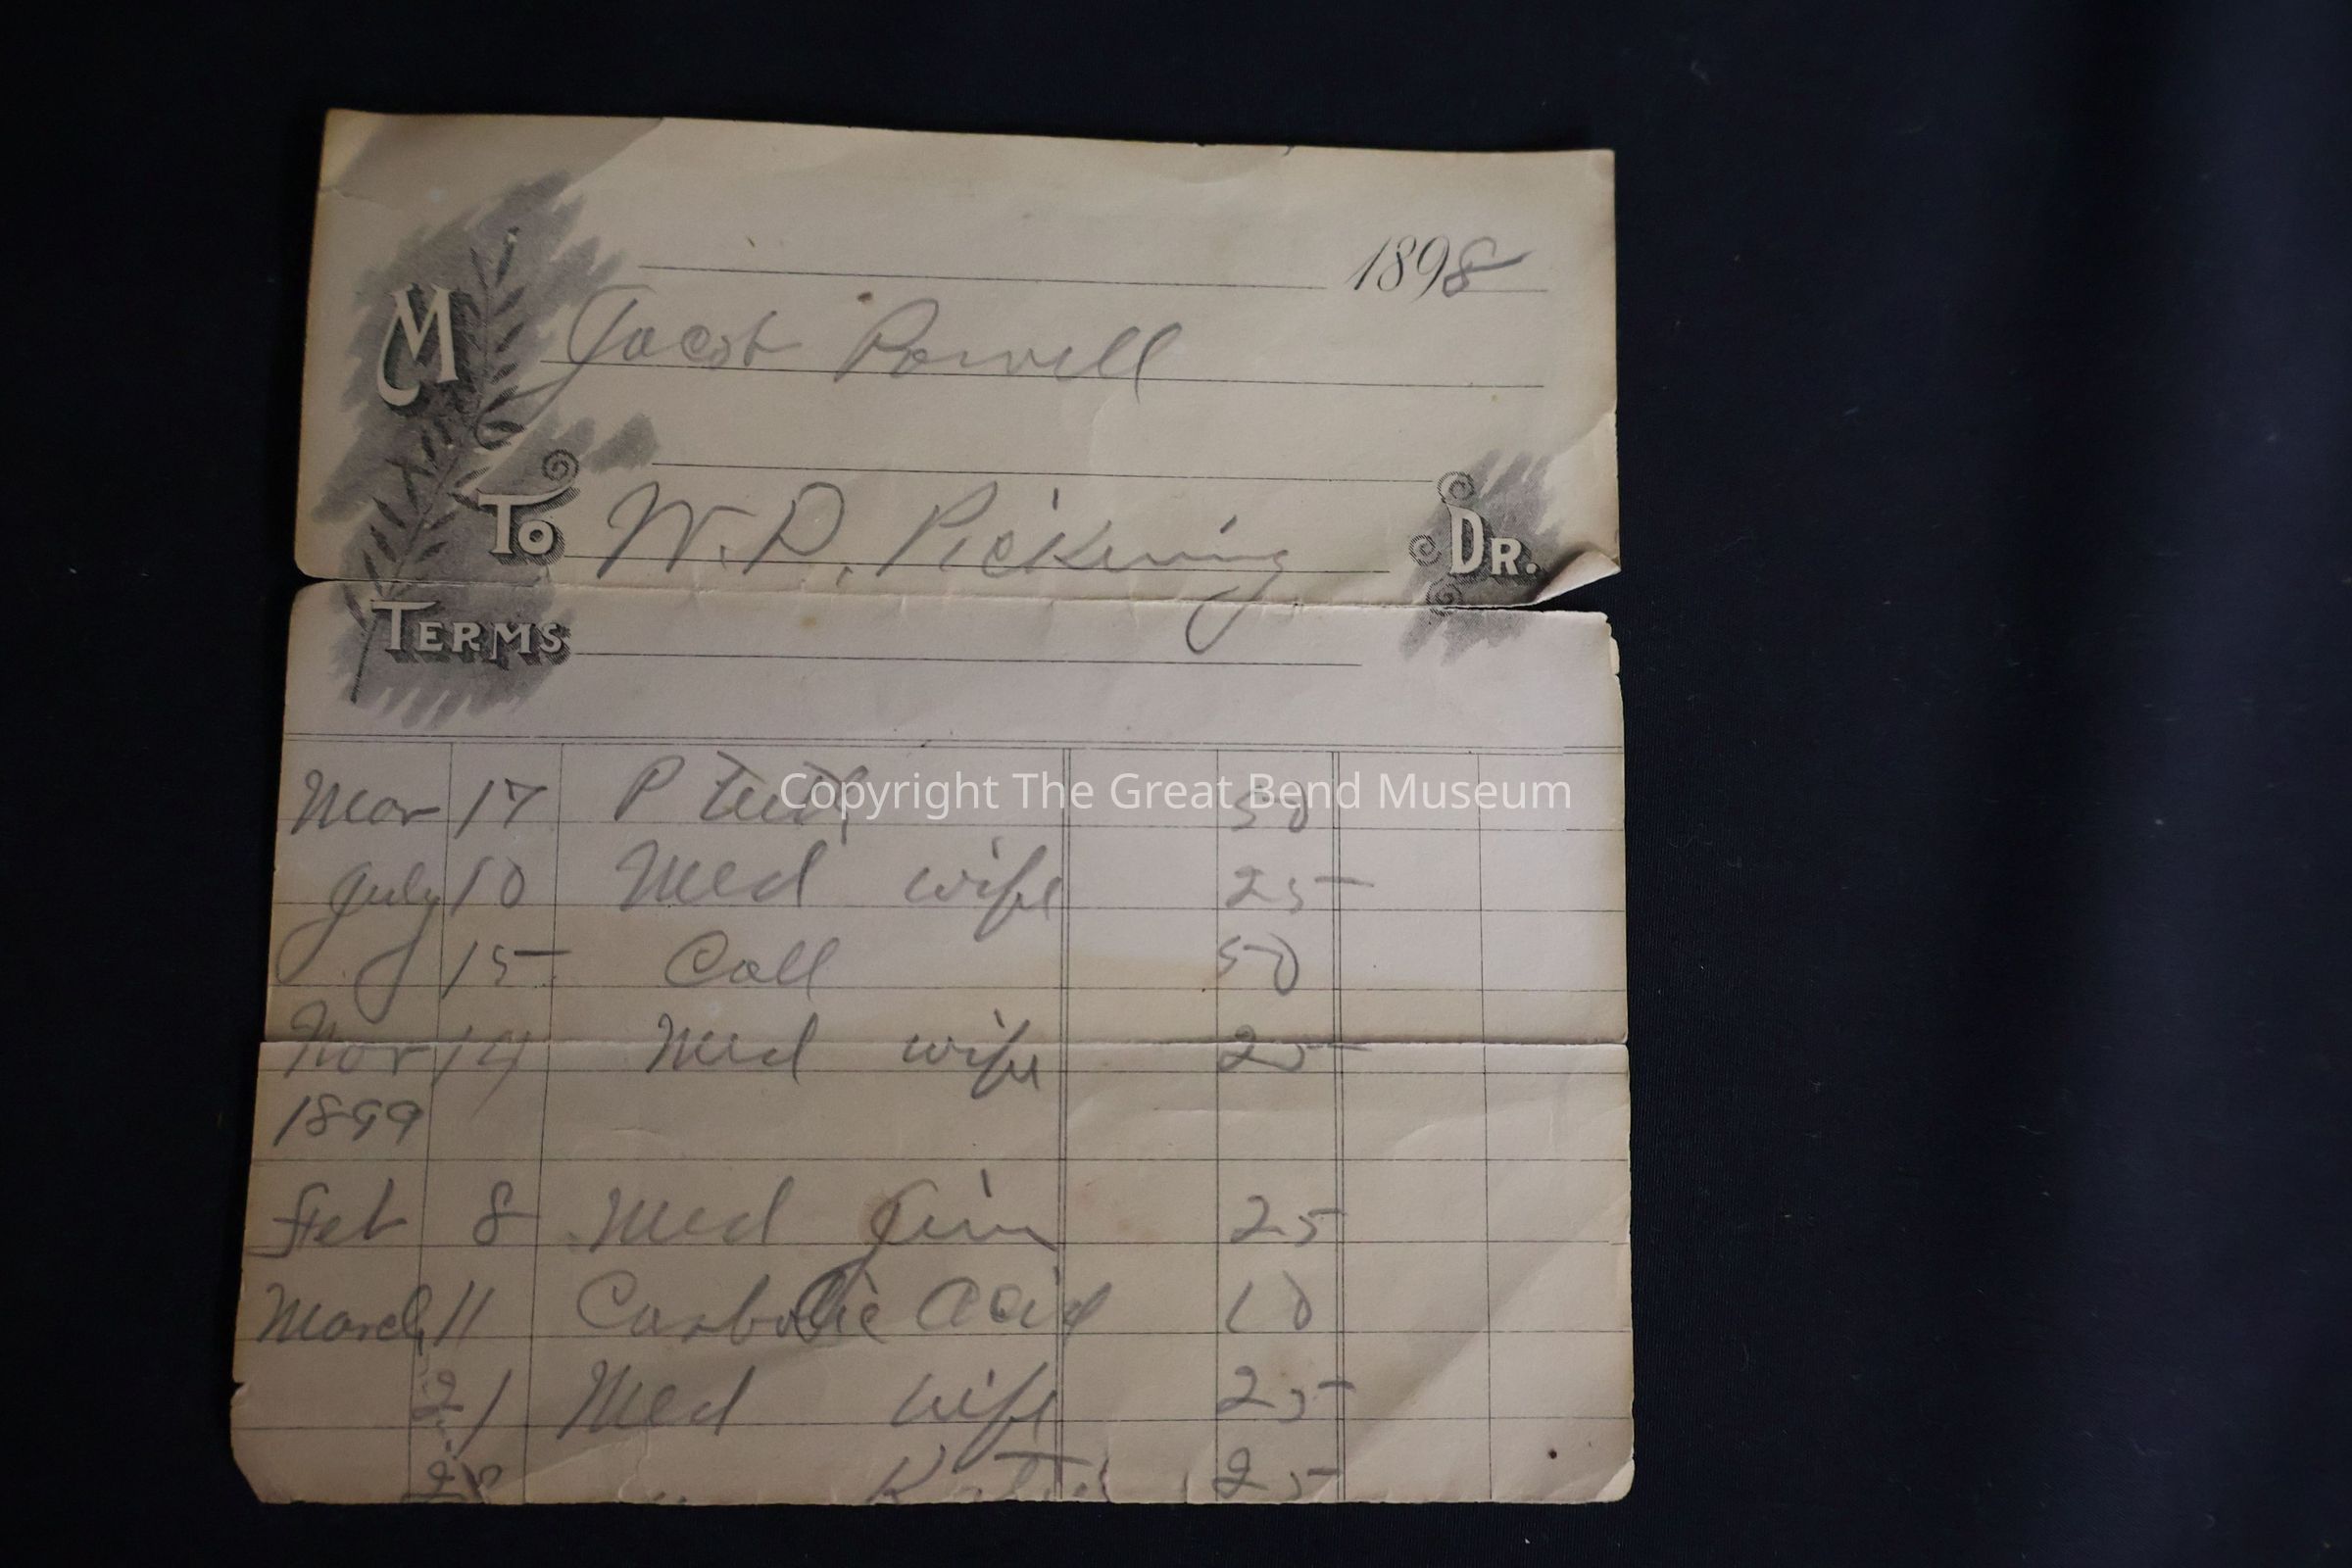 1898
M Jacob Powell
To W. P. Pickering Dr.
Terms
Mar 17 P Teeth 50
July 10 Med wife 25
15 Call 50
Nov 14 Med wife 25
1899
Feb 8 Med Jim 25
March 11 Carbolic Acid 10
21 Med wife 25
25
Copyright The Great Bend Museum